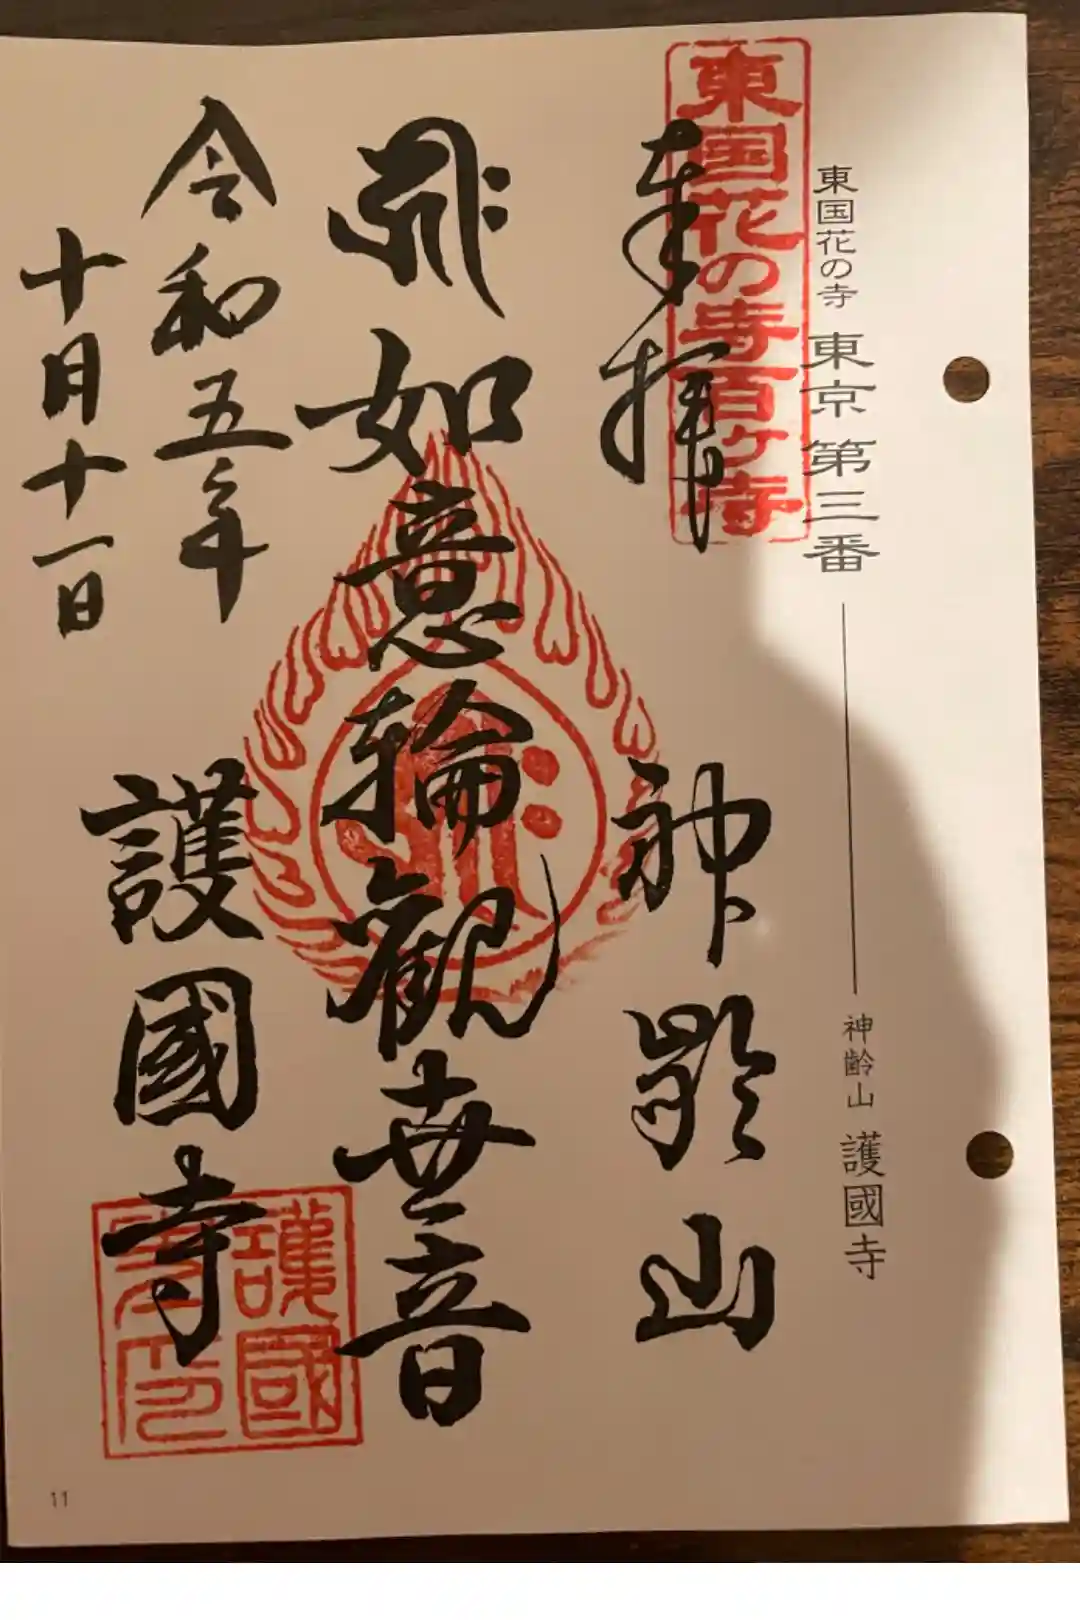 東国花の寺 東京 第三番
神齢山 護國寺
東国花の寺百ヶ寺
奉拝
神齢山
如意輪觀世音
令和五年
十月十一日
護國寺
護國
寺印
11